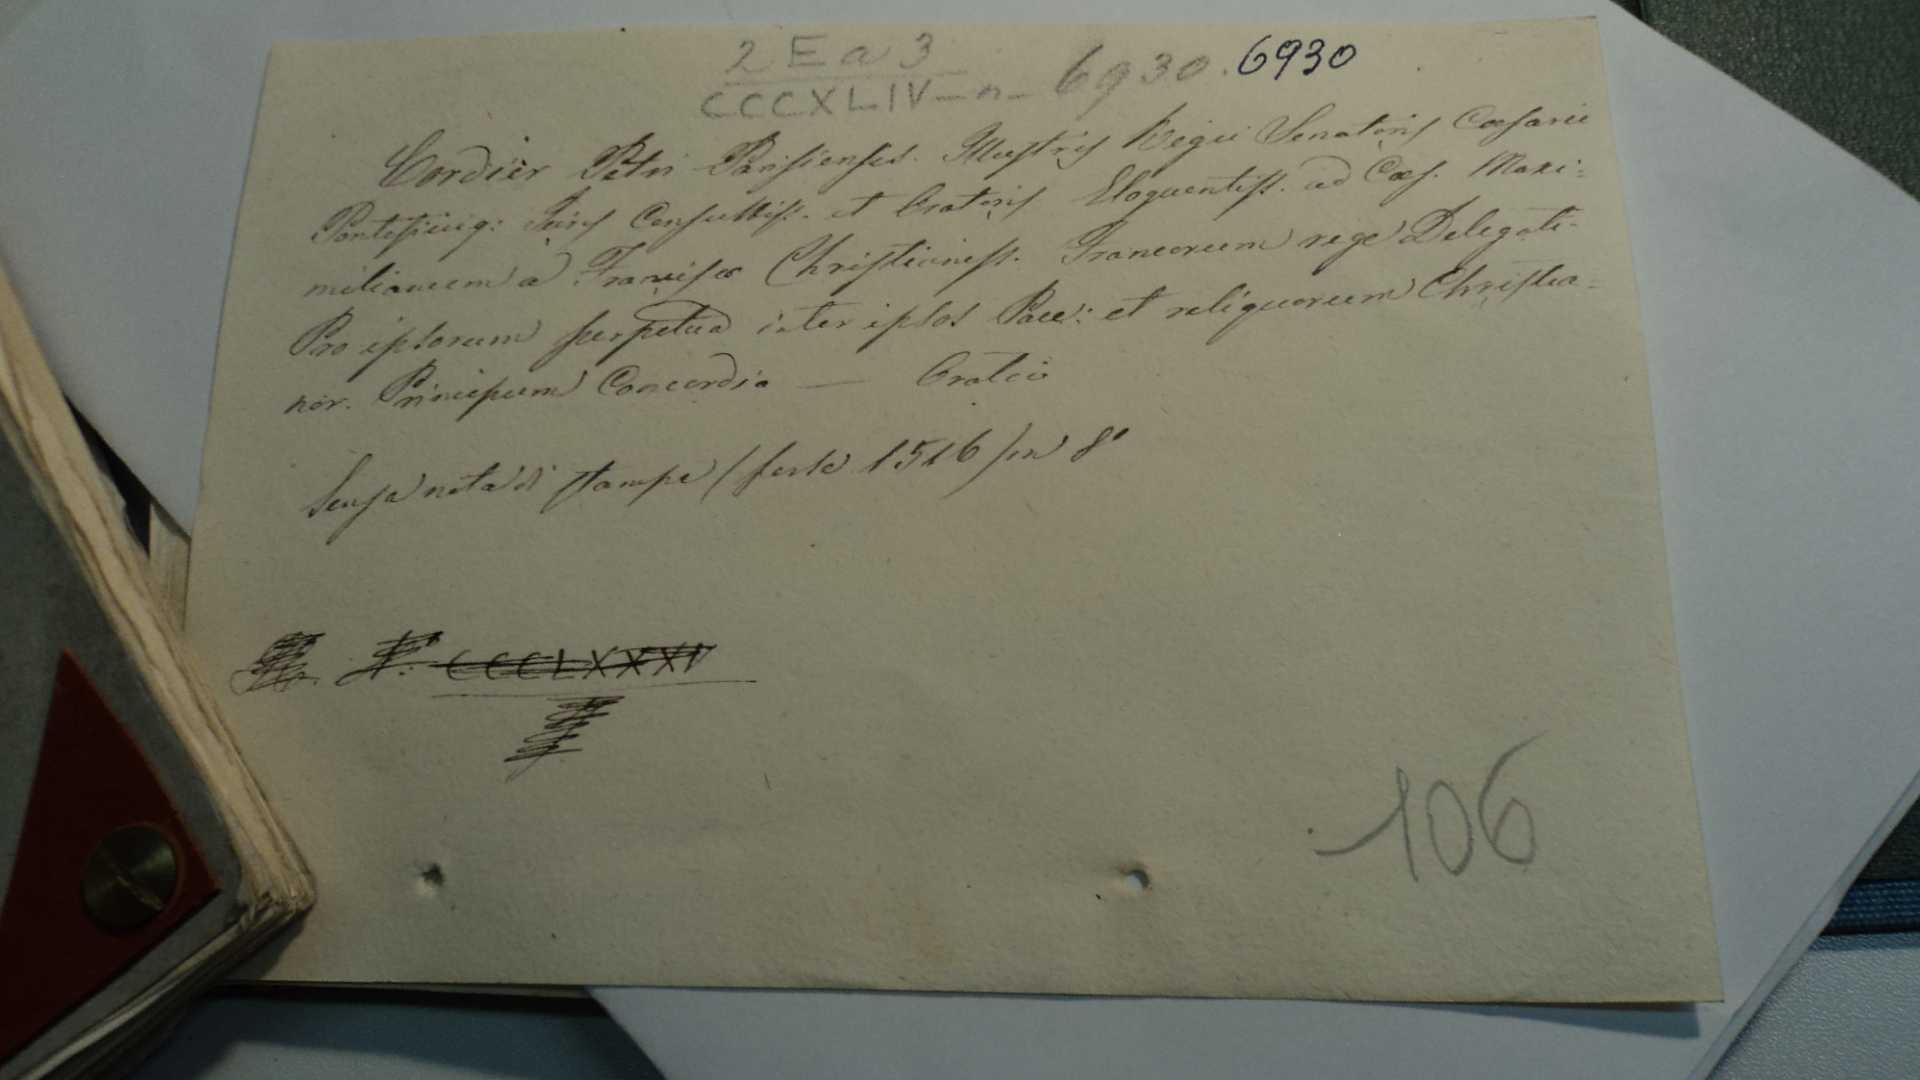 2 E a 3
CCCXLIV - n - 6930. 6930
Cordier Petri Parisienses. Illustris Regii Senatoris Cæsarei
Pontificiiq: Juris Consultiss. et Oratoris Eloquentiss. ad Cæs. Maxi=
milianum a Francisco Christianiss. Francorum rege Delegati.
Pro ipsorum perpetua inter ipsos Pace: et reliquorum Christia=
nor. Principum Concordia — Oratio
Senza nota di stampe (forse 1516) in 8°
CCCLXXXI
106